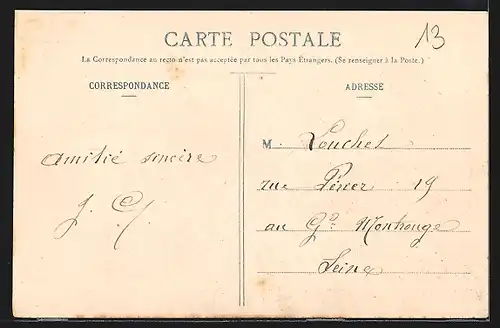 CARTE POSTALE
13
La Correspondance au recto n'est pas acceptée par tous les Pays Étrangers. (Se renseigner à la Poste.)
CORRESPONDANCE
ADRESSE
amitié sincère
M. Louchet
rue Périer 19
au Gd Montrouge
Seine